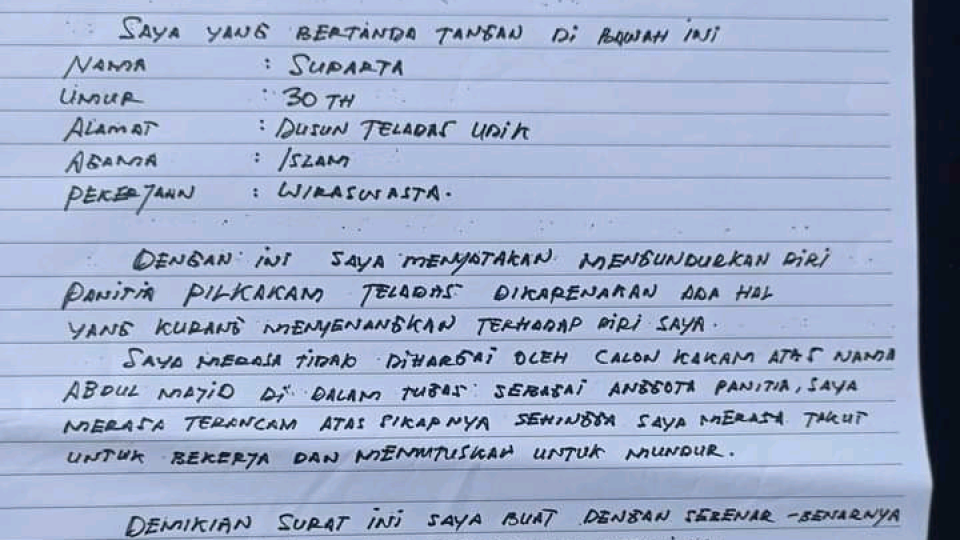 SAYA YANG BERTANDA TANGAN Di BAWAH INI
NAMA : SUPARTA
UMUR : 30 TH
ALAMAT : DUSUN TELADAS UDIK
AGAMA : ISLAM
PEKERJAAN : WIRASWASTA.
DENGAN INI SAYA MENYATAKAN MENGUNDURKAN DIRI
PANITIA PILKAKAM TELADAS DIKARENAKAN ADA HAL
YANG KURANG MENYENANGKAN TERHADAP DIRI SAYA.
SAYA MERASA TIDAK DIHARGAI OLEH CALON KAKAM ATAS NAMA
ABDUL MAJID DI DALAM TUGAS SEBAGAI ANGGOTA PANITIA, SAYA
MERASA TERANCAM ATAS SIKAPNYA SEHINGGA SAYA MERASA TAKUT
UNTUK BEKERJA DAN MEMUTUSKAN UNTUK MUNDUR.
DEMIKIAN SURAT INI SAYA BUAT DENGAN SEBENAR-BENARNYA